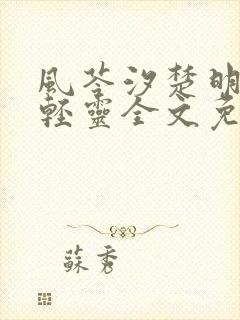 風苓汐楚明
輕靈全文免
蘇秀